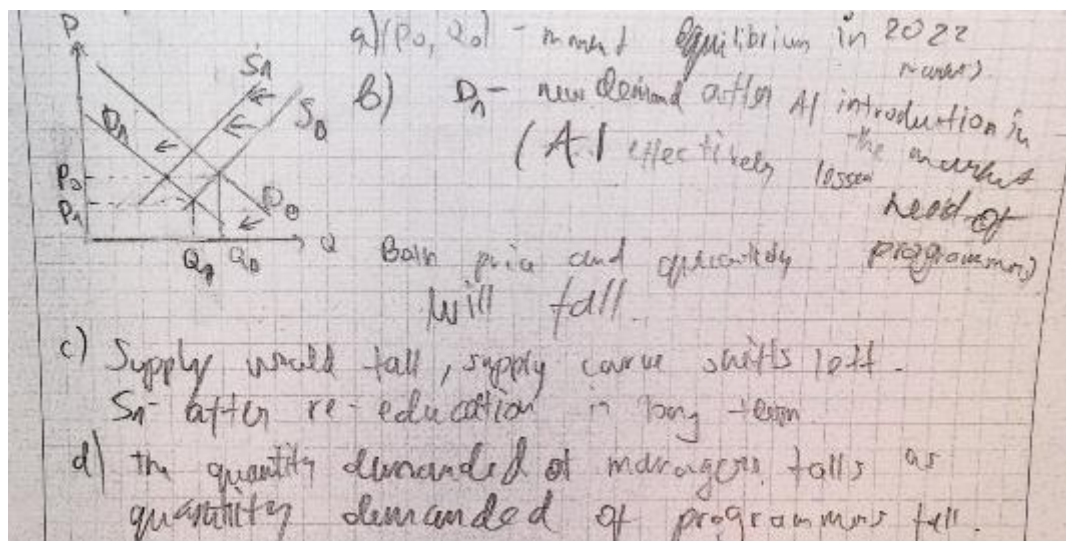 P
S₁
S₀
D₁
D₀
P₀
P₁
Q₁ Q₀ Q
a) (P₀, Q₀) - Equilibrium in 2022
b) D₁ - new demand after AI introduction in
the market
(AI effectively lessen
need of
programmers)
Both price and quantity
will fall.
c) Supply would fall, supply curve shifts left.
S₁ - after re-education in long term
d) The quantity demanded of managers falls as
quantity demanded of programmers fall.